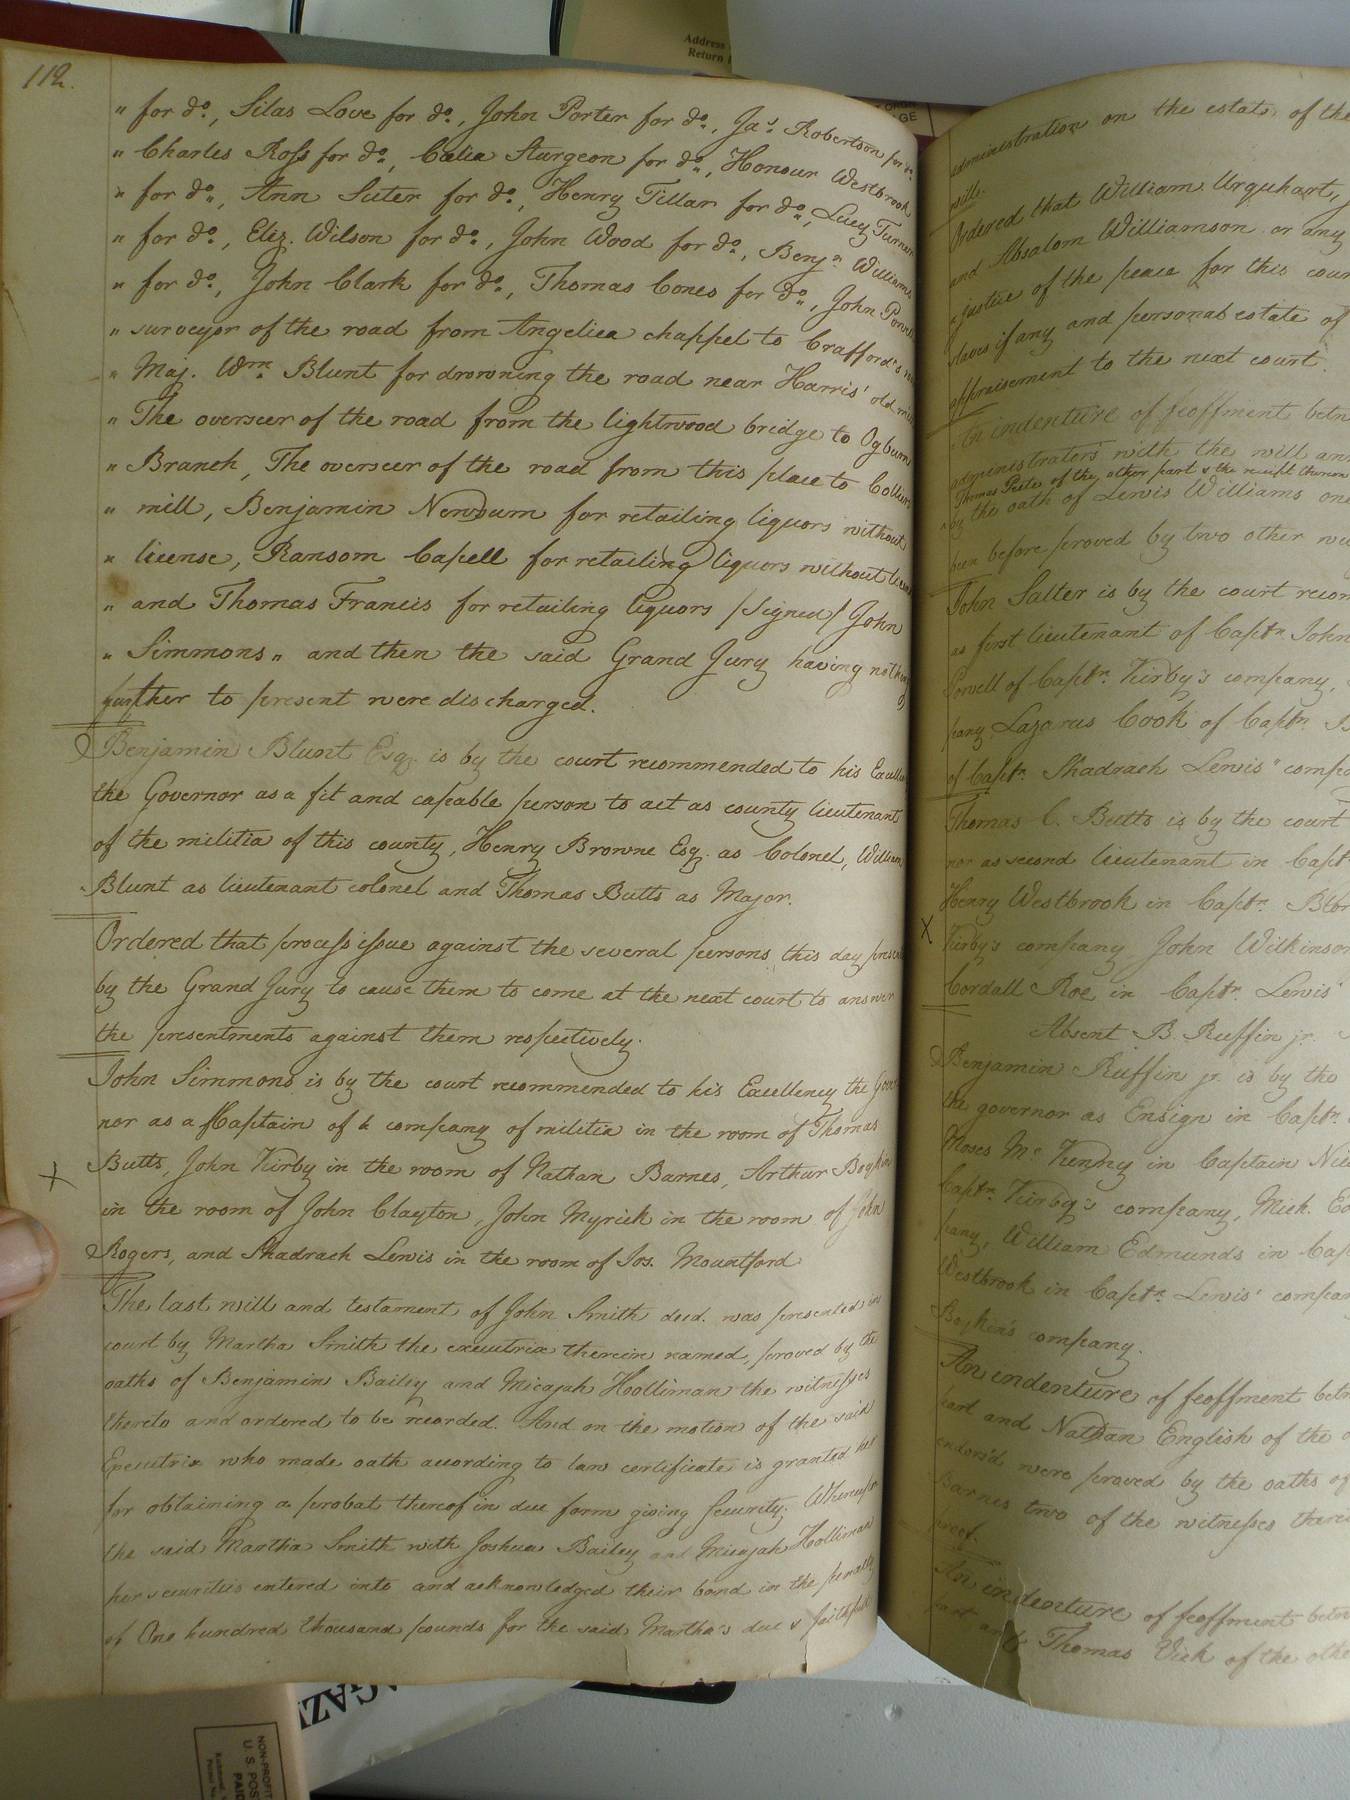 112.
" for do., Silas Love for do., John Porter for do., Jas. Robertson for do.
" Charles Ross for do., Celia Sturgeon for do., Honour Westbrook
" for do., Ann Suter for do., Henry Tillar for do., Lucy Turner
" for do., Eliz. Wilson for do., John Wood for do., Benjn Williams
" for do., John Clark for do., Thomas Cones for do., John Powell
" surveyor of the road from Angelica chappel to Crafford's
" Maj. Wm Blunt for drowning the road near Harris' old mill
" The overseer of the road from the lightwood bridge to Ogburn
" Branch, The overseer of the road from this place to Colliers
" mill, Benjamin Newsum for retailing liquors without
" license, Ransom Capell for retailing liquors without
" and Thomas Francis for retailing liquors /Signed/ John
" Simmons " and then the said Grand Jury having nothing
further to present were discharged.
Benjamin Blunt Esqr. is by the court recommended to his
the Governor as a fit and capable person to act as county lieutenant
of the militia of this county, Henry Browne Esq. as Colonel, William
Blunt as lieutenant colonel and Thomas Butts as Major.
Ordered that process issue against the several persons this day
by the Grand Jury to cause them to come at the next court to answer
the presentments against them respectively.
John Simmons is by the court recommended to his Excellency the Gover
nor as a Captain of a company of militia in the room of Thomas
X Butts, John Kirby in the room of Nathan Barnes, Arthur Boykin
in the room of John Clayton, John Myrick in the room of John
Rogers, and Shadrach Lewis in the room of Jos. Mountford
The last will and testament of John Smith decd. was presented in
court by Martha Smith the executrix therein named, proved by the
oaths of Benjamin Bailey and Micajah Holliman the witnesses
thereto and ordered to be recorded. And on the motion of the said
Executrix who made oath according to law certificate is granted her
for obtaining a probat thereof in due form giving security. Whereupon
the said Martha Smith with Joshua Bailey and Micajah Holliman
her securities entered into and acknowledged their bond in the penalty
of One hundred thousand pounds for the said Martha's due & faithfull
administration on the estate of the
will.
Ordered that William Urquhart,
and Absalom Williamson or any
a justice of the peace for this coun
slaves if any and personal estate of
appraisement to the next court.
An indenture of feoffment betw
administrators with the will an
Thomas Pete of the other part & the receipt thereon
by the oath of Lewis Williams one
been before proved by two other
John Salter is by the court recom
as first lieutenant of Captn John
Powell of Captn. Kirby's company,
pany Lazarus Cook of Captn. B
of Captn. Shadrach Lewis' compa
Thomas C. Butts is by the court
nor as second lieutenant in Captn
Henry Westbrook in Captn. Blu
X Kirby's company John Wilkinson
Cordall Roe in Captn. Lewis'
Absent B. Ruffin jr.
Benjamin Ruffin jr. is by the
the governor as Ensign in Captn.
Moses Mc Kenny in Captain
Captn Kirby's company, Mich.
pany, William Edmunds in Cap
Westbrook in Captn. Lewis' compan
Boykin's company.
An indenture of feoffment betw
part and Nathan English of the o
endors'd were proved by the oaths of
Barnes two of the witnesses there
proof.
An indenture of feoffment betw
part and Thomas Vick of the othe
Address
Return
NON-PROFIT
U. S. POS
PAID